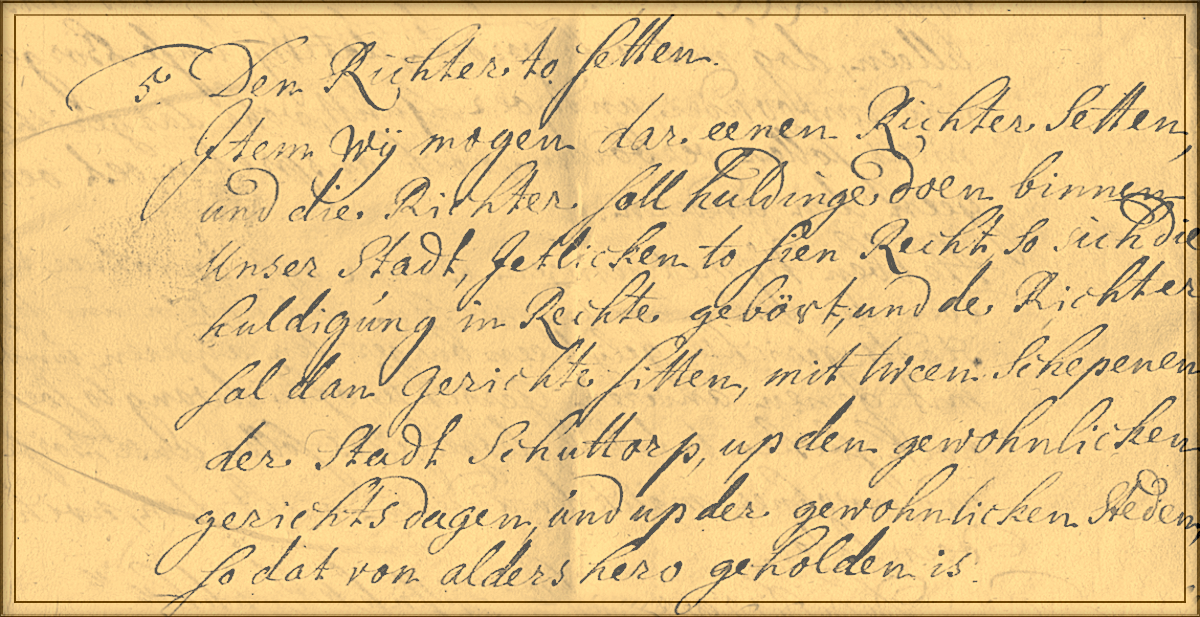 5. Den Richter to setten.
Item Wij mogen dar eenen Richter Setten,
und die Richter soll huldinge doen binnen
Unser Stadt, Jetlicken to sien Recht, so sich die
huldigúng in Rechte gebört, und de Richter
sal dan gerichte sitten, mit tween Schepenen
der Stadt Schuttorp, up den gewohnlicken
gerichts dagen, únd up der gewohnlicken Steden,
so dat von alders hero geholden is.